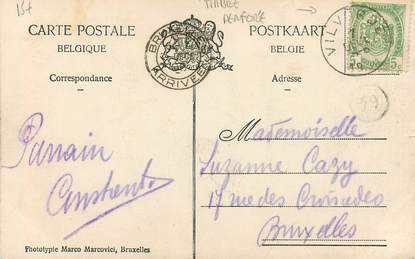 TIMBRE
PERFORÉ
CARTE POSTALE
BELGIQUE
POSTKAART
BELGIE
ARRIVEE
VILVORDE
5
Correspondance
Adresse
59
Mademoiselle
Suzanne Cazy
17 rue des Croisades
Bruxelles
Parrain
Constant.
Phototypie Marco Marcovici, Bruxelles